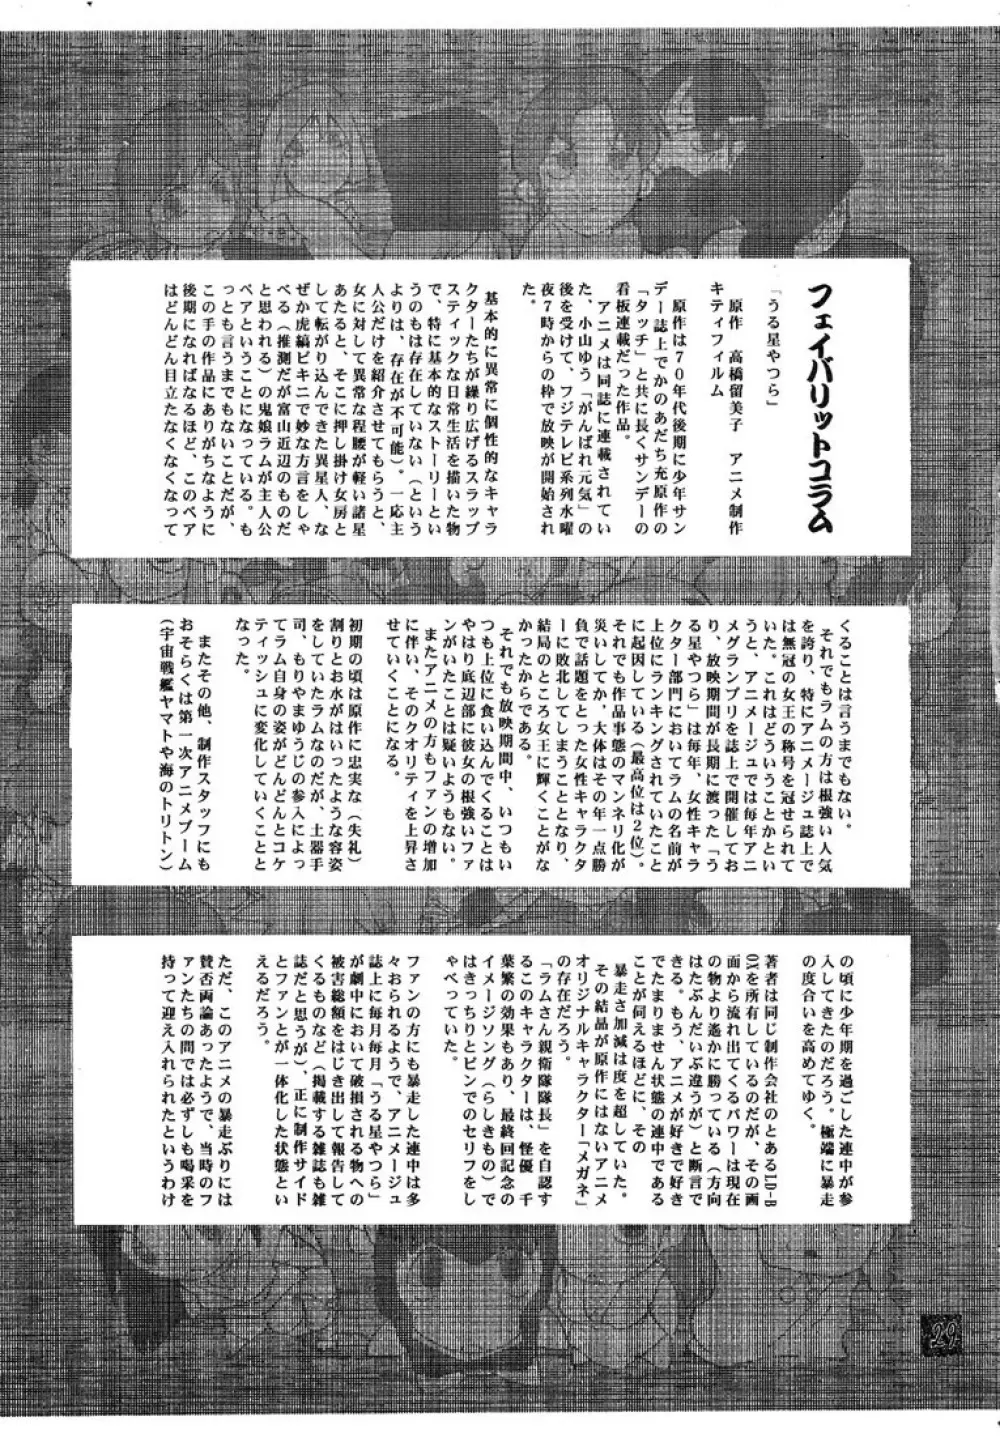 フェイバリットコラム
「うる星やつら」
原作　高橋留美子　アニメ制作
キティフィルム
原作は７０年代後期に少年サン
デー誌上でかのあだち充原作の
「タッチ」と共に長くサンデーの
看板連載だった作品。
アニメは同誌に連載されてい
た、小山ゆう「がんばれ元気」の
後を受けて、フジテレビ系列水曜
夜７時からの枠で放映が開始され
た。
基本的に異常に個性的なキャラ
クターたちが繰り広げるスラップ
スティックな日常生活を描いた物
で、特に基本的なストーリーとい
うのもは存在していない（という
よりは、存在が不可能）。一応主
人公だけを紹介させてもらうと、
女に対して異常な程腰が軽い諸星
あたると、そこに押し掛け女房と
して転がり込んできた異星人、な
ぜか虎縞ビキニで妙な方言をしゃ
べる（推測だが富山近辺のものだ
と思われる）の鬼娘ラムが主人公
ペアということになっている。も
っとも言うまでもないことだが、
この手の作品にありがちなように
後期になればなるほど、このペア
はどんどん目立たなくなくなって
くることは言うまでもない。
それでもラムの方は根強い人気
を誇り、特にアニメージュ誌上で
は無冠の女王の称号を冠せられて
いた。これはどういうことかとい
うと、アニメージュでは毎年アニ
メグランプリを誌上で開催してお
り、放映期間が長期に渡った「う
る星やつら」は毎年、女性キャラ
クター部門においてラムの名前が
上位にランキングされていたこと
に起因している（最高位は２位）。
それでも作品事態のマンネリ化が
災いしてか、大体はその年一点勝
負で話題をとった女性キャラクタ
ーに敗北してしまうこととなり、
結局のところ女王に輝くことがな
かったからである。
それでも放映期間中、いつもい
つも上位に食い込んでくることは
やはり底辺部に彼女の根強いファ
ンがいたことは疑いようもない。
またアニメの方もファンの増加
に伴い、そのクオリティを上昇さ
せていくことになる。
初期の頃は原作に忠実な（失礼）
割りとお水がはいったような容姿
をしていたラムなのだが、土器手
司、もりやまゆうじの参入によっ
てラム自身の姿がどんどんとコケ
ティッシュに変化していくことと
なった。
またその他、制作スタッフにも
おそらくは第一次アニメブーム
（宇宙戦艦ヤマトや海のトリトン）
の頃に少年期を過ごした連中が参
入してきたのだろう。極端に暴走
の度合いを高めてゆく。
著者は同じ制作会社のとあるLD-B
OXを所有しているのだが、その画
面から流れ出てくるパワーは現在
の物より遙かに勝っている（方向
はたぶんだいぶ違うが）と断言で
きる。もう、アニメが好きで好き
でたまりません状態の連中である
ことが伺えるほどに、その
暴走さ加減は度を超していた。
その結晶が原作にはないアニメ
オリジナルキャラクター「メガネ」
の存在だろう。
「ラムさん親衛隊隊長」を自認す
るこのキャラクターは、怪優　千
葉繁の効果もあり、最終回記念の
イメージソング（らしきもの）で
はきっちりとピンでのセリフをし
ゃべっていた。
ファンの方にも暴走した連中は多
々おられるようで、アニメージュ
誌上に毎月毎月「うる星やつら」
が劇中において破損される物への
被害総額をはじき出して報告して
くるものなど（掲載する雑誌も雑
誌だと思うが）、正に制作サイド
とファンとが一体化した状態とい
えるだろう。
ただ、このアニメの暴走ぶりには
賛否両論あったようで、当時のフ
ァンたちの間では必ずしも喝采を
持って迎え入れられたというわけ
29